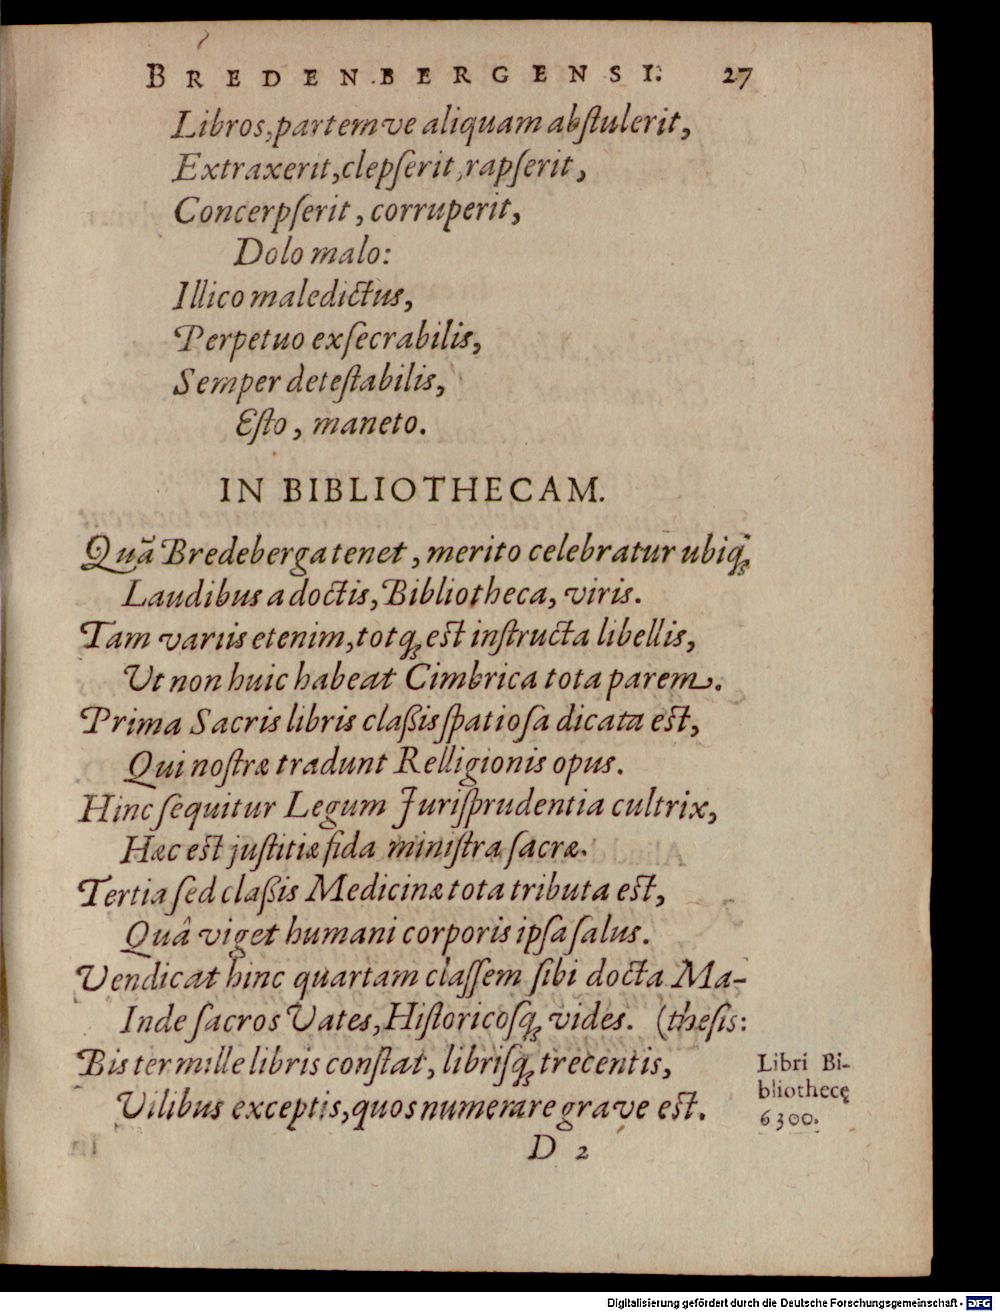 BREDENBERGENSI. 27
Libros, partemve aliquam abſtulerit,
Extraxerit, clepſerit, rapſerit,
Concerpſerit, corruperit,
Dolo malo:
Illico maledictus,
Perpetuo exſecrabilis,
Semper deteſtabilis,
Eſto, maneto.
IN BIBLIOTHECAM.
Quã Bredeberga tenet, merito celebratur ubiq́;
Laudibus a doctis, Bibliotheca, viris.
Tam variis etenim, totq; est inſtructa libellis,
Ut non huic habeat Cimbrica tota parem.
Prima Sacris libris claßis ſpatioſa dicata est,
Qui noſtræ tradunt Relligionis opus.
Hinc ſequitur Legum Juriſprudentia cultrix,
Hæc est juſtitiæ fida miniſtra ſacræ.
Tertia ſed claßis Medicinæ tota tributa est,
Quâ viget humani corporis ipſa ſalus.
Vendicat hinc quartam claſſem ſibi docta Ma-
Inde ſacros Vates, Hiſtoricoſq; vides. (theſis:
Bis ter mille libris conſtat, libriſq; trecentis,
Vilibus exceptis, quos numerare grave est.
Libri Bi-
bliothecę
6300.
D 2
Digitalisierung gefördert durch die Deutsche Forschungsgemeinschaft - DFG